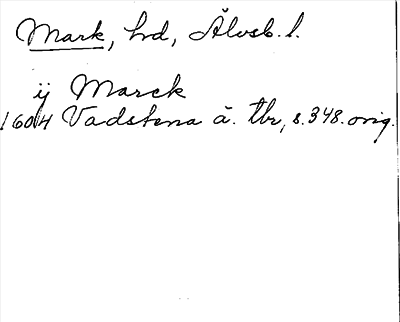 Mark, hd, Älvsb. l.
ij Marck
1604 Vadstena ä. tbr, s. 348. orig.